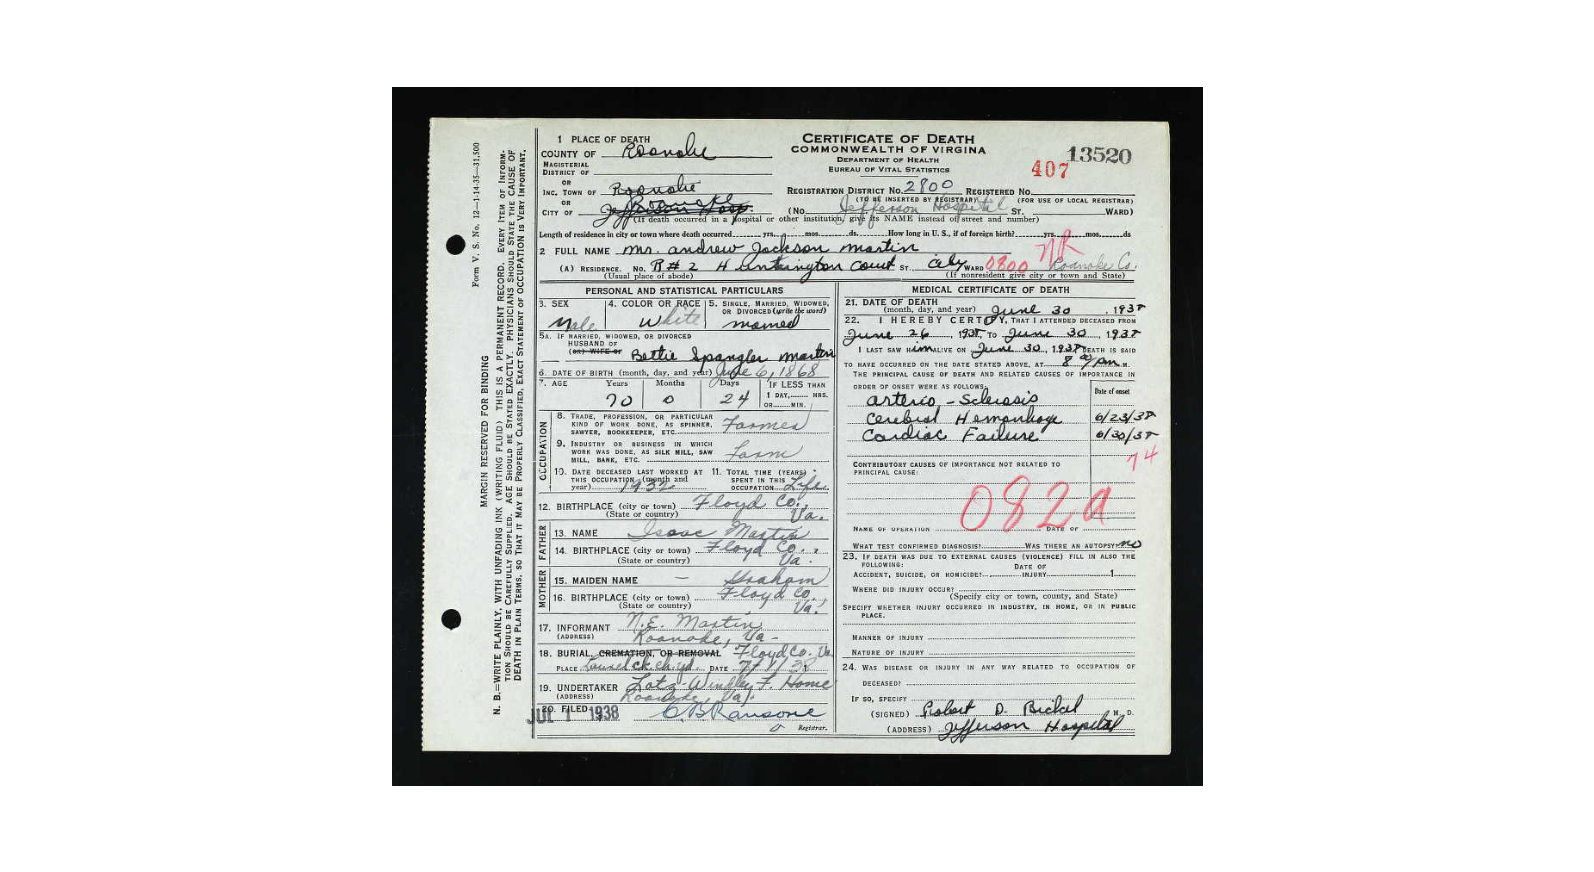 Form V. S. No. 12—1-14-35—31,500
MARGIN RESERVED FOR BINDING
N. B.—WRITE PLAINLY, WITH UNFADING INK (WRITING FLUID) THIS IS A PERMANENT RECORD. EVERY ITEM OF INFORM-
TION SHOULD BE CAREFULLY SUPPLIED. AGE SHOULD BE STATED EXACTLY. PHYSICIANS SHOULD STATE THE CAUSE OF
DEATH IN PLAIN TERMS, SO THAT IT MAY BE PROPERLY CLASSIFIED. EXACT STATEMENT OF OCCUPATION IS VERY IMPORTANT.
CERTIFICATE OF DEATH
COMMONWEALTH OF VIRGINIA
DEPARTMENT OF HEALTH
BUREAU OF VITAL STATISTICS
407 13520
1 PLACE OF DEATH
COUNTY OF Roanoke
MAGISTERIAL
DISTRICT OF
OR
INC. TOWN OF Roanoke
OR
CITY OF Jefferson Hosp. Roanoke
REGISTRATION DISTRICT NO. 2800 REGISTERED NO.
(TO BE INSERTED BY REGISTRAR) (FOR USE OF LOCAL REGISTRAR)
(No. Jefferson Hospital ST. WARD)
(If death occurred in a hospital or other institution, give its NAME instead of street and number)
Length of residence in city or town where death occurred yrs. mos. ds. How long in U. S., if of foreign birth? yrs. mos. ds
2 FULL NAME Mr. Andrew Jackson Martin NR
(A) RESIDENCE. NO. R#2 Huntington Court ST. City WARD 0800 Roanoke Co.
(Usual place of abode) (If nonresident give city or town and State)
PERSONAL AND STATISTICAL PARTICULARS
3. SEX Male
4. COLOR OR RACE White
5. SINGLE, MARRIED, WIDOWED, OR DIVORCED (write the word) Married
5A. IF MARRIED, WIDOWED, OR DIVORCED
HUSBAND OF
(OR) WIFE OF Bettie Spangler Martin
6. DATE OF BIRTH (month, day, and year) June 6, 1868
7. AGE Years Months Days IF LESS THAN
1 DAY, HRS.
OR MIN.
70 0 24
OCCUPATION
8. TRADE, PROFESSION, OR PARTICULAR
KIND OF WORK DONE, AS SPINNER,
SAWYER, BOOKKEEPER, ETC. Farmer
9. INDUSTRY OR BUSINESS IN WHICH
WORK WAS DONE, AS SILK MILL, SAW
MILL, BANK, ETC. Farm
10. DATE DECEASED LAST WORKED AT
THIS OCCUPATION (month and
year) 1932
11. TOTAL TIME (YEARS)
SPENT IN THIS
OCCUPATION Life
12. BIRTHPLACE (city or town) Floyd Co.
(State or country) Va.
FATHER
13. NAME Isaac Martin
14. BIRTHPLACE (city or town) Floyd Co.
(State or country) Va.
MOTHER
15. MAIDEN NAME — Graham
16. BIRTHPLACE (city or town) Floyd Co.
(State or country) Va.
17. INFORMANT N.E. Martin
(ADDRESS) Roanoke, Va-
18. BURIAL, CREMATION, OR REMOVAL Floyd Co. Va
PLACE DATE 7/1/38
19. UNDERTAKER F. Home
(ADDRESS) Roanoke, Va.
20. FILED JUL 1 1938 C.B. Ransone
Registrar.
MEDICAL CERTIFICATE OF DEATH
21. DATE OF DEATH
(month, day, and year) June 30, 1938
22. I HEREBY CERTIFY, THAT I ATTENDED DECEASED FROM
June 26, 1938 TO June 30, 1938
I LAST SAW HIM ALIVE ON June 30, 1938 DEATH IS SAID
TO HAVE OCCURRED ON THE DATE STATED ABOVE, AT 8 PM M.
THE PRINCIPAL CAUSE OF DEATH AND RELATED CAUSES OF IMPORTANCE IN
ORDER OF ONSET WERE AS FOLLOWS: Date of onset
Arterio-Sclerosis
Cerebral Hemorrhage 6/23/38
Cardiac Failure 6/30/38
74
CONTRIBUTORY CAUSES OF IMPORTANCE NOT RELATED TO
PRINCIPAL CAUSE:
082a
NAME OF OPERATION DATE OF
WHAT TEST CONFIRMED DIAGNOSIS? WAS THERE AN AUTOPSY? no
23. IF DEATH WAS DUE TO EXTERNAL CAUSES (VIOLENCE) FILL IN ALSO THE
FOLLOWING:
ACCIDENT, SUICIDE, OR HOMICIDE? DATE OF INJURY 1
WHERE DID INJURY OCCUR?
(Specify city or town, county, and State)
SPECIFY WHETHER INJURY OCCURRED IN INDUSTRY, IN HOME, OR IN PUBLIC
PLACE.
MANNER OF INJURY
NATURE OF INJURY
24. WAS DISEASE OR INJURY IN ANY WAY RELATED TO OCCUPATION OF
DECEASED?
IF SO, SPECIFY
(SIGNED) Robert D. Bickel M. D.
(ADDRESS) Jefferson Hospital